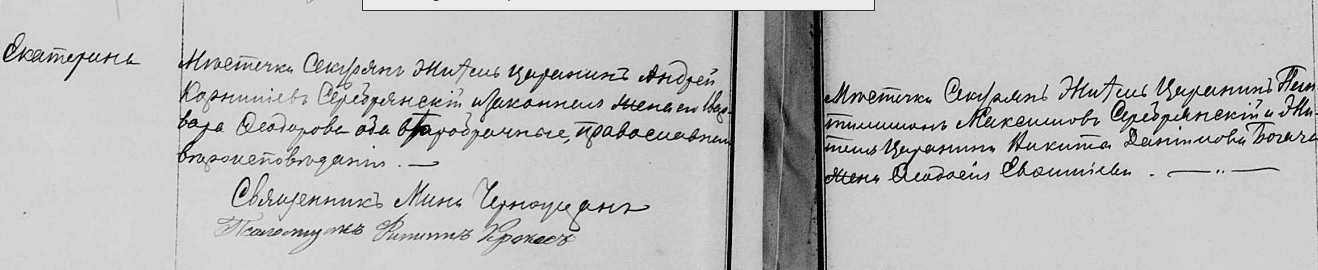 Екатерина
Мѣстечка Секурянъ Житель Царанинъ Андрей
Корнилiевъ Серебрянскiй и законная жена его Вар-
вара Ѳеодорова оба второбрачные, православнаго
вѣроисповѣданiя. —
Священникъ Мина
Псаломщикъ Филиппъ
Мѣстечка Секурянъ Житель Царанинъ Пен-
тилимонъ Максимовъ Серебрянскiй и Жи-
тель Царанина Никита Данiилова Богача
жена Ѳеодосiя . — „ —